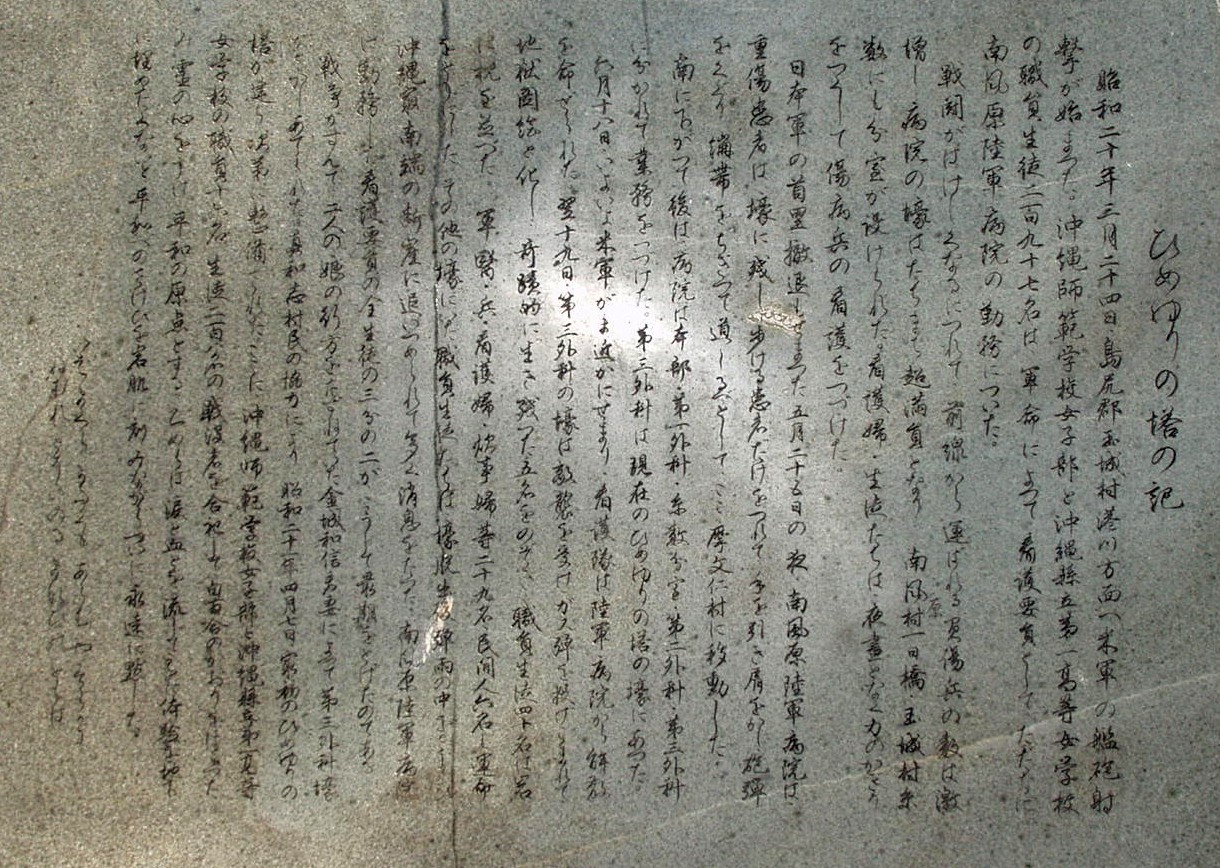 ひめゆりの塔の記
昭和二十年三月二十四日島尻郡玉城村港川方面へ米軍の艦砲射
撃が始まった。沖縄師範学校女子部と沖縄縣立第一高等女学校
の職員生徒二百九十七名は軍命によって看護要員としてただちに
南風原陸軍病院の勤務についた。
戦闘がはげしくなるにつれて、前線から運ばれる負傷兵の数は激
増し病院の壕はたちまち超満員となり南風原村一日橋玉城村糸
数にも分室が設けられた。看護婦・生徒たちは夜晝となく力のかぎり
をつくして傷病兵の看護をつづけた。
日本軍の首里撤退もせまった五月二十五日の夜南風原陸軍病院は
重傷患者は壕に残し歩ける患者だけをつれて手を引き肩をかし砲弾
をくぐり繃帯をちぎって道しるべとしてここ摩文仁村に移動した。
南に下がって後は病院は本部・第一外科・糸数分室・第二外科・第三外科
に分かれて業務をつづけた。第三外科は現在のひめゆりの塔の壕にあった。
六月十八日いよいよ米軍がま近かにせまり、看護隊は陸軍病院から解散
を命ぜられた。翌十九日・第三外科の壕は敵襲を受けガス弾を投げこまれて
地獄図絵と化し、奇蹟的に生き残った五名をのぞき職員生徒四十名は岩
に枕を並べた。軍醫・兵・看護婦・炊事婦等二十九名民間人六名も運命
をともにした。その他の壕にいた職員生徒たちは壕脱出後弾雨の中をさまよい
沖縄最南端の断崖に追いつめられて多く消息をたった。南風原陸軍病院
に勤務した看護要員の全生徒の三分の二がこうして最期をとげたのである
戦争がすんで二人の娘の行方をたずねて 金城和信夫妻によって第三外科壕
が 真和志村民の協力により昭和二十一年四月七日最初のひめゆりの
塔が建ち次第に整備された。ここに沖縄師範学校女子部と沖縄縣立第一高等
女学校の職員十六名生徒二百 名の戦没者を合祀して白百合のかおりをほこった
み霊の心をうけ平和の原点とする。乙女らは涙と血とを流してえた体験を地
に埋めたくないと平和へのさけびを岩肌に刻みながらついに永遠に黙した